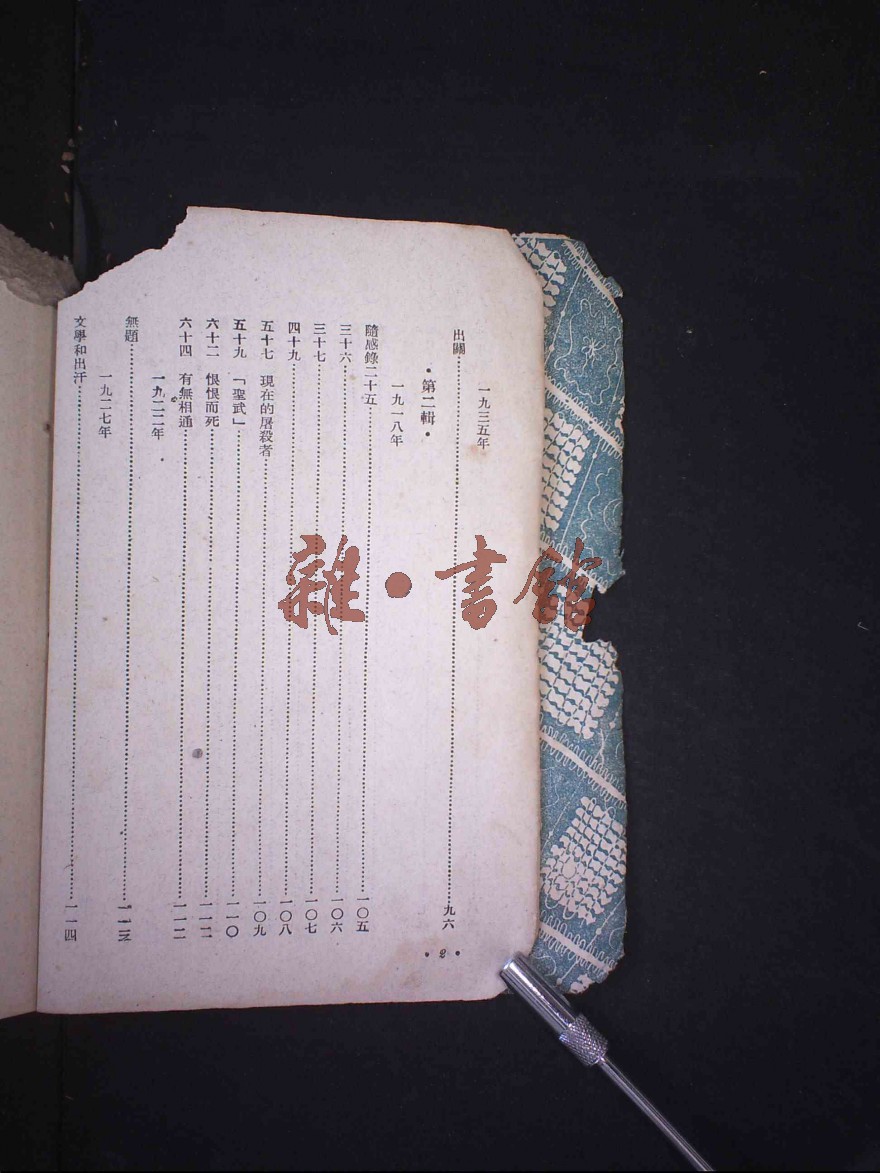 一九三五年
出關……九六
•第二輯•
一九一八年
隨感錄二十五……一〇五
三十六……一〇六
三十七……一〇七
四十九……一〇八
五十七　現在的屠殺者……一〇九
五十九　「聖武」……一一〇
六十二　恨恨而死……一一二
六十四　有無相通……一一二
一九二二年
無題……一一三
一九二七年
文學和出汗……一一四
• 2 •
雜•書館